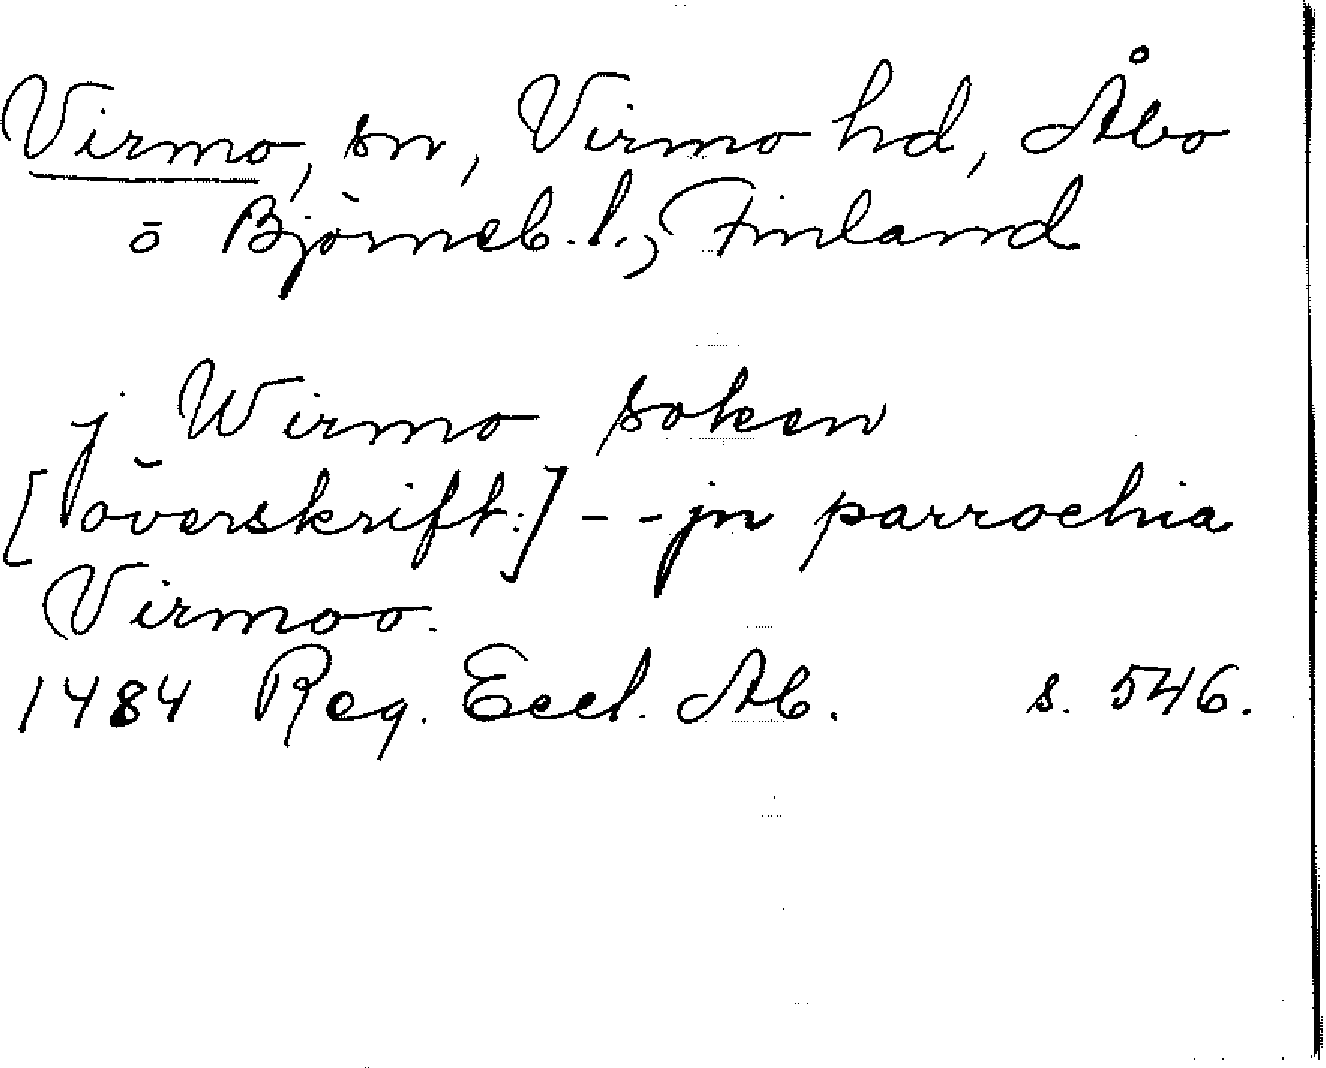 Virmo, sn, Virmo hd, Åbo
o Björneb. l., Finland
j Wirmo soken
[överskrift:] - - jn parrochia
Virmoo.
1484 Reg. Eccl. Ab. s. 546.